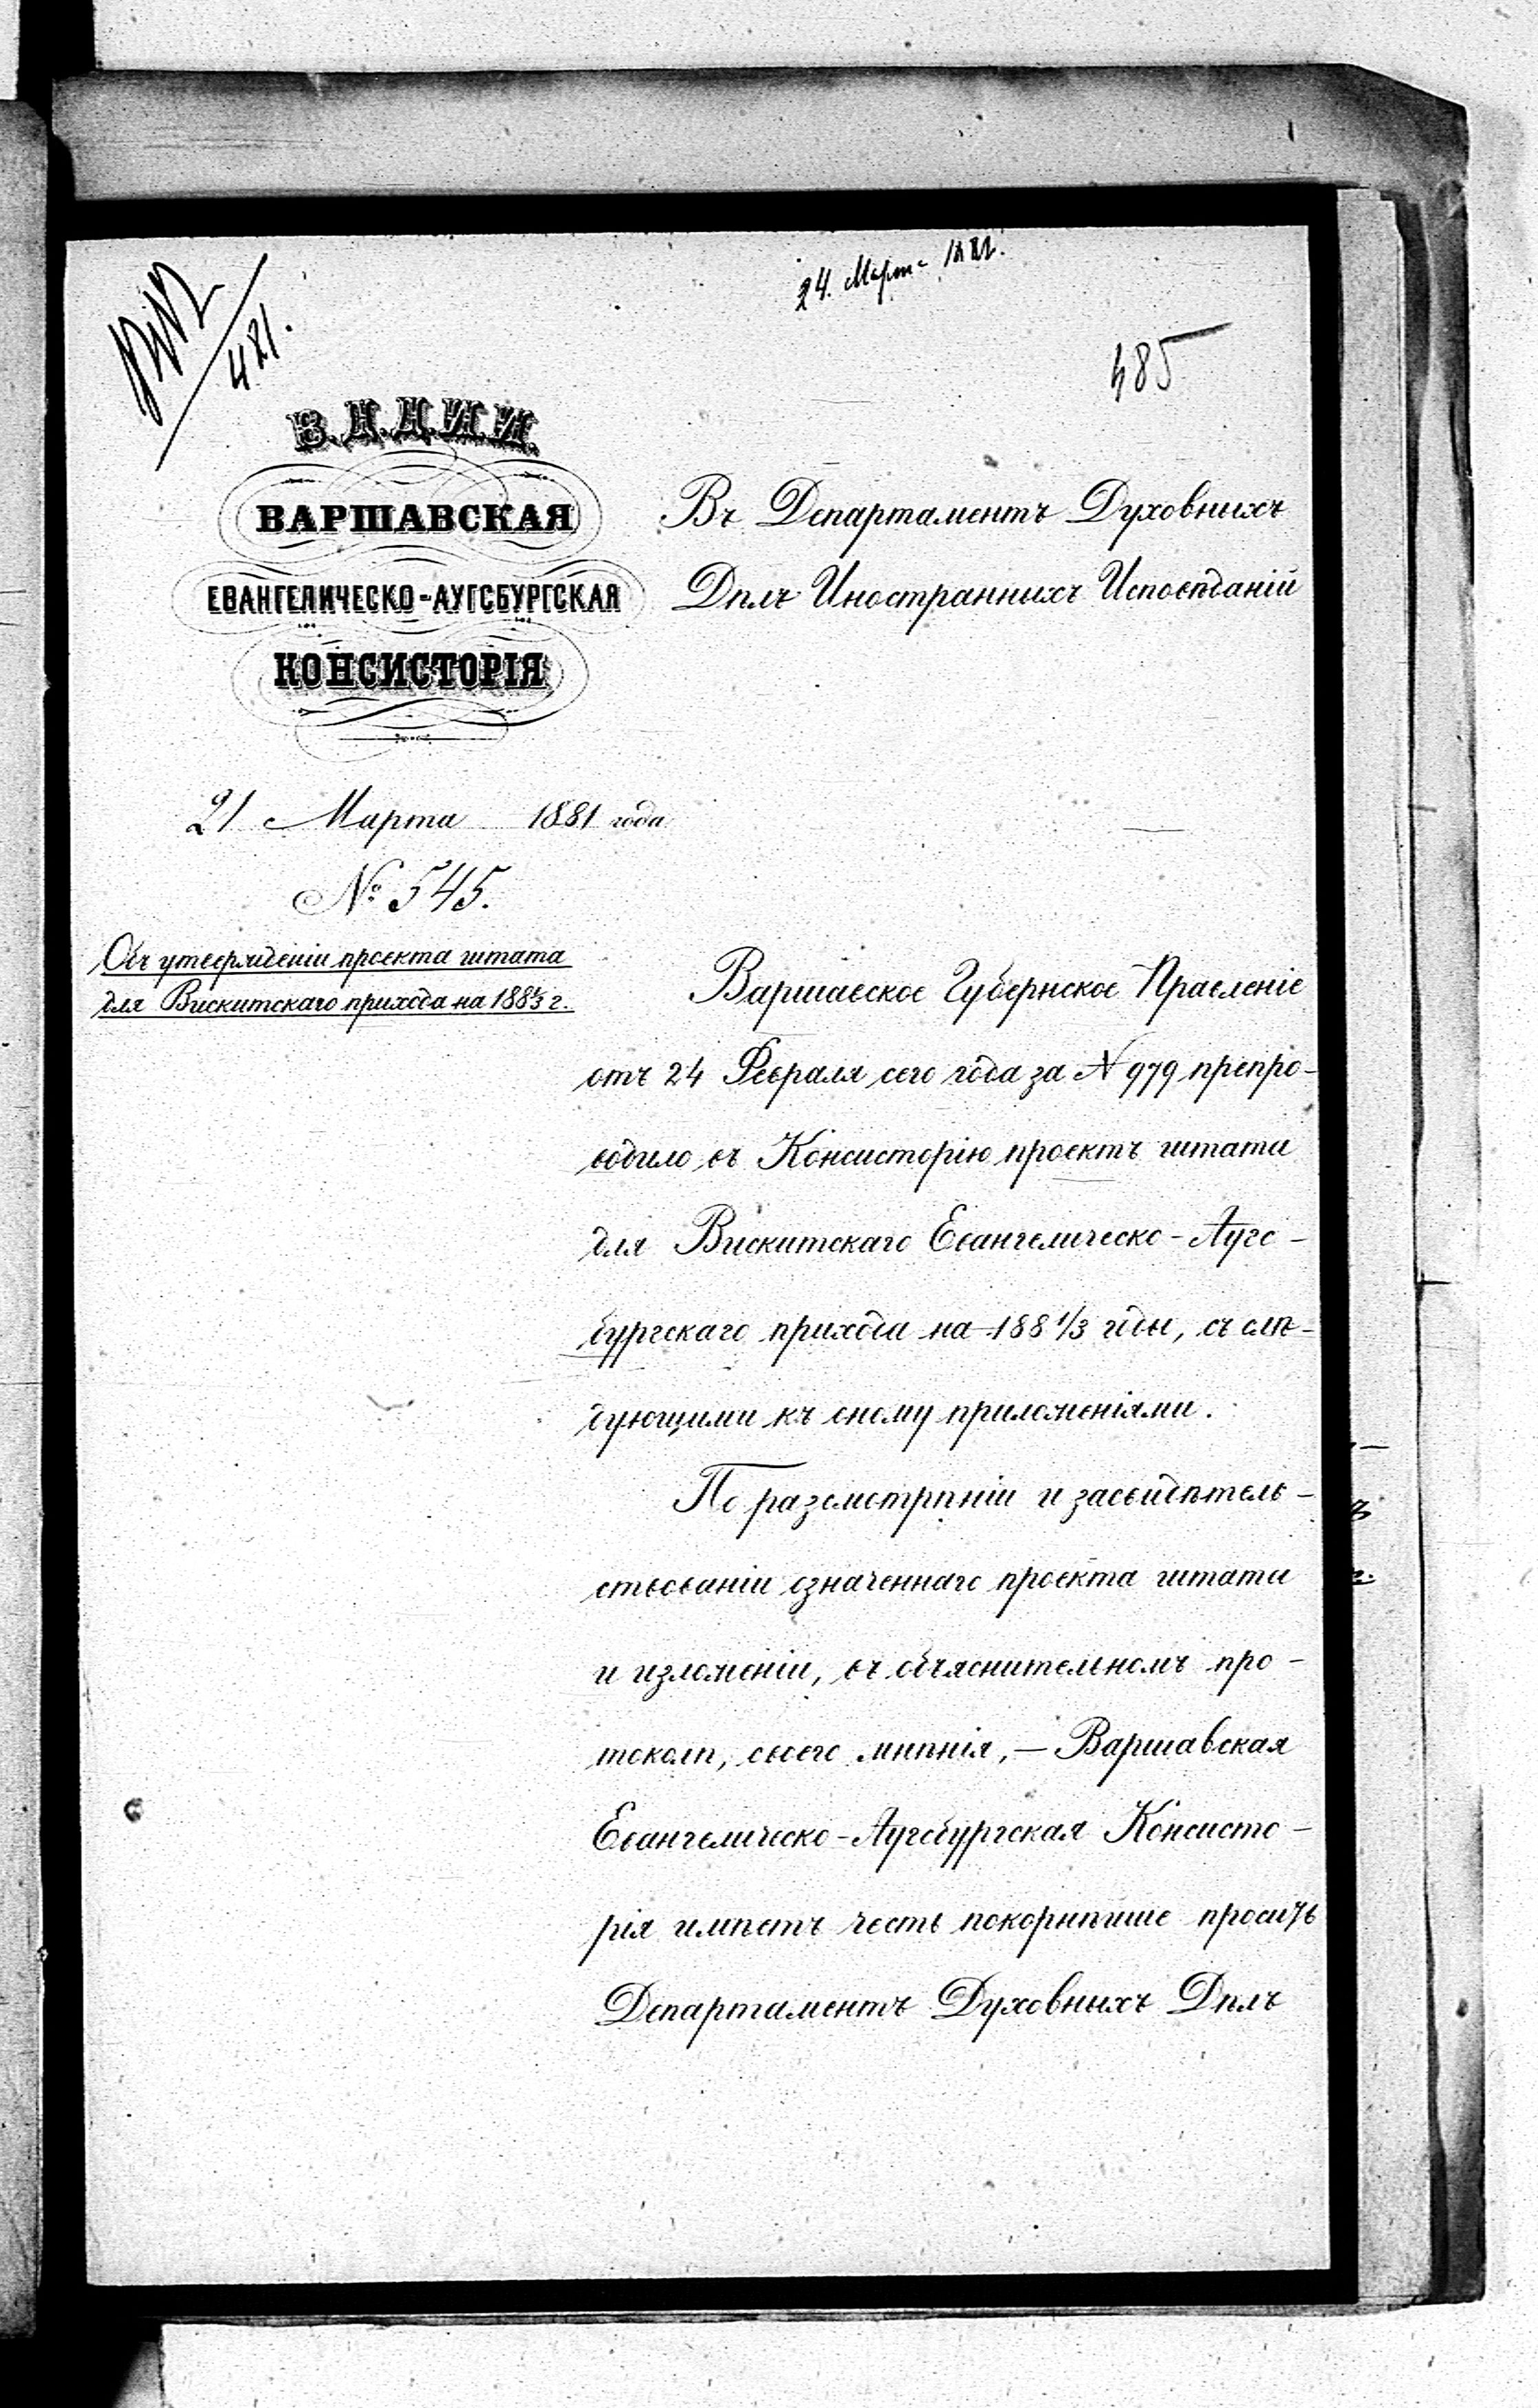 24. Марта 1881.
481.
485
В.Д.Д.И.И.
ВАРШАВСКАЯ
ЕВАНГЕЛИЧЕСКО-АУГСБУРГСКАЯ
КОНСИСТОРІЯ
Въ Департаментъ Духовныхъ
Дѣлъ Иностранныхъ Исповѣданій
21 Марта 1881 года
№ 545.
Объ утвержденіи проекта штата
для Вискитскаго прихода на 188⅓ г.
Варшавское Губернское Правленіе
отъ 24 Февраля сего года за № 979 препро-
водило въ Консисторію проектъ штата
для Вискитскаго Евангелическо-Аугс-
бургскаго прихода на 188 1/3 годы, съ слѣ-
дующими къ оному приложеніями.
По разсмотрѣніи и засвидѣтель-
ствованіи означеннаго проекта штата
и изложеніи, въ объяснительномъ про-
токолѣ, своего мнѣнія, — Варшавская
Евангелическо-Аугсбургская Консисто-
рія имѣетъ честь покорнѣйше просить
Департаментъ Духовныхъ Дѣлъ